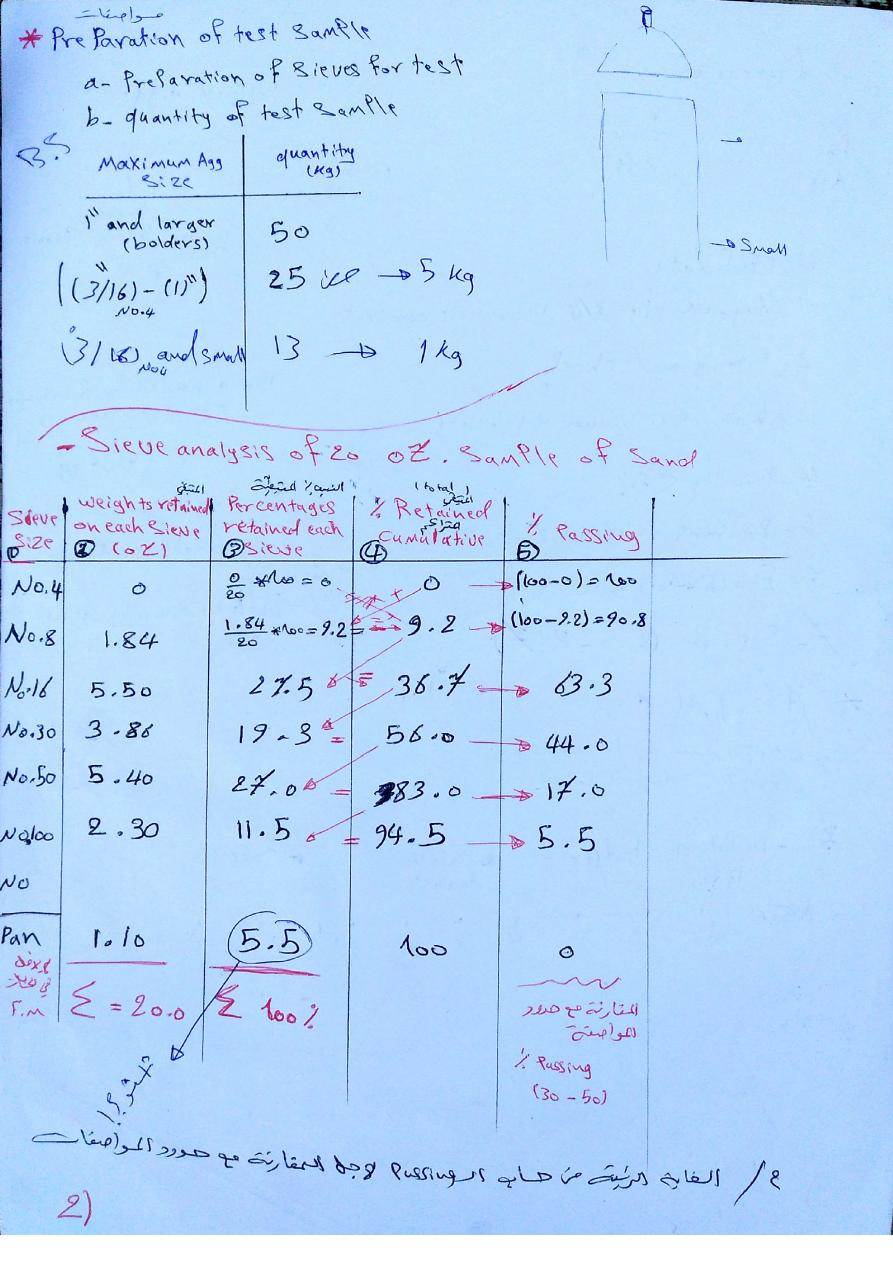 مواصفات
* Preparation of test sample
a- Preparation of sieves for test
b- quantity of test sample
B.S
Maximum Agg Size | quantity (kg)
1" and larger (bolders) | 50
((3/16)" - (1)") No.4 | 25 → 5 kg
(3/16) No4 and small | 13 → 1 kg
→ Small
- Sieve analysis of 20 oz. sample of sand
Sieve Size 1 | weights retained المتبقي on each sieve 2 (oz) | النسبة٪ المتبقية Percentages retained each 3 sieve | (total) المتبقي % Retained متراكم 4 cumulative | % Passing 5
No.4 | 0 | 0/20 *100 = 0 | 0 | (100-0) = 100
No.8 | 1.84 | 1.84/20 *100 = 9.2 | 9.2 | (100-9.2) = 90.8
No.16 | 5.50 | 27.5 | 36.7 | 63.3
No.30 | 3.86 | 19.3 | 56.0 | 44.0
No.50 | 5.40 | 27.0 | 83.0 | 17.0
No.100 | 2.30 | 11.5 | 94.5 | 5.5
No
Pan | 1.10 | 5.5 | 100 | 0
F.M | Σ = 20.0 | Σ 100%
المقارنة مع حدود
المواصفة
% Passing
(30-50)
م/ الغاية الرئيسية من حساب الـ Passing لاجل المقارنة مع حدود المواصفات
2)